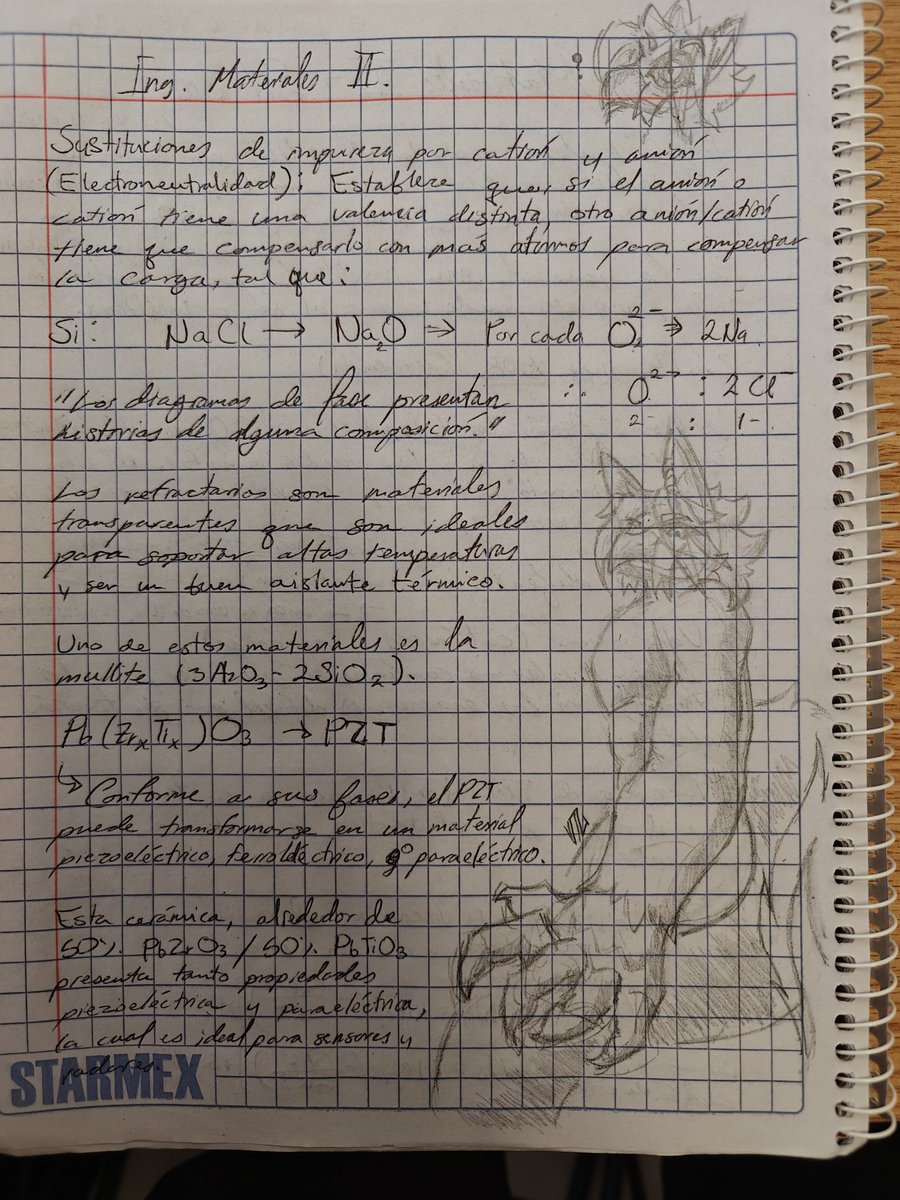 Ing. Materiales II.
Sustituciones de impureza por catión y anión
(Electroneutralidad): Establece que, si el anión o
catión tiene una valencia distinta, otro anión/catión
tiene que compensarlo con mas átomos para compensar
la carga, tal que:
Si: NaCl → Na₂O ⇒ Por cada O²⁻ ⇒ 2Na
∴ O²⁻ : 2Cl⁻
2- : 1-
"Los diagramas de fase presentan
historias de alguna composición."
Los refractarios son materiales
transparentes que son ideales
para soportar altas temperaturas
y ser un buen aislante térmico.
Uno de estos materiales es la
mullite (3Al₂O₃-2SiO₂).
Pb(ZrₓTiₓ)O₃ → PZT
↳ Conforme a sus fases, el PZT
puede transformarse en un material
piezoeléctrico, ferroléctrico, o paraeléctrico.
Esta cerámica, alrededor de
50% PbZrO₃ / 50% PbTiO₃
presenta tanto propiedades
piezoeléctrica y paraeléctrica,
la cual es ideal para sensores y
radares.
STARMEX